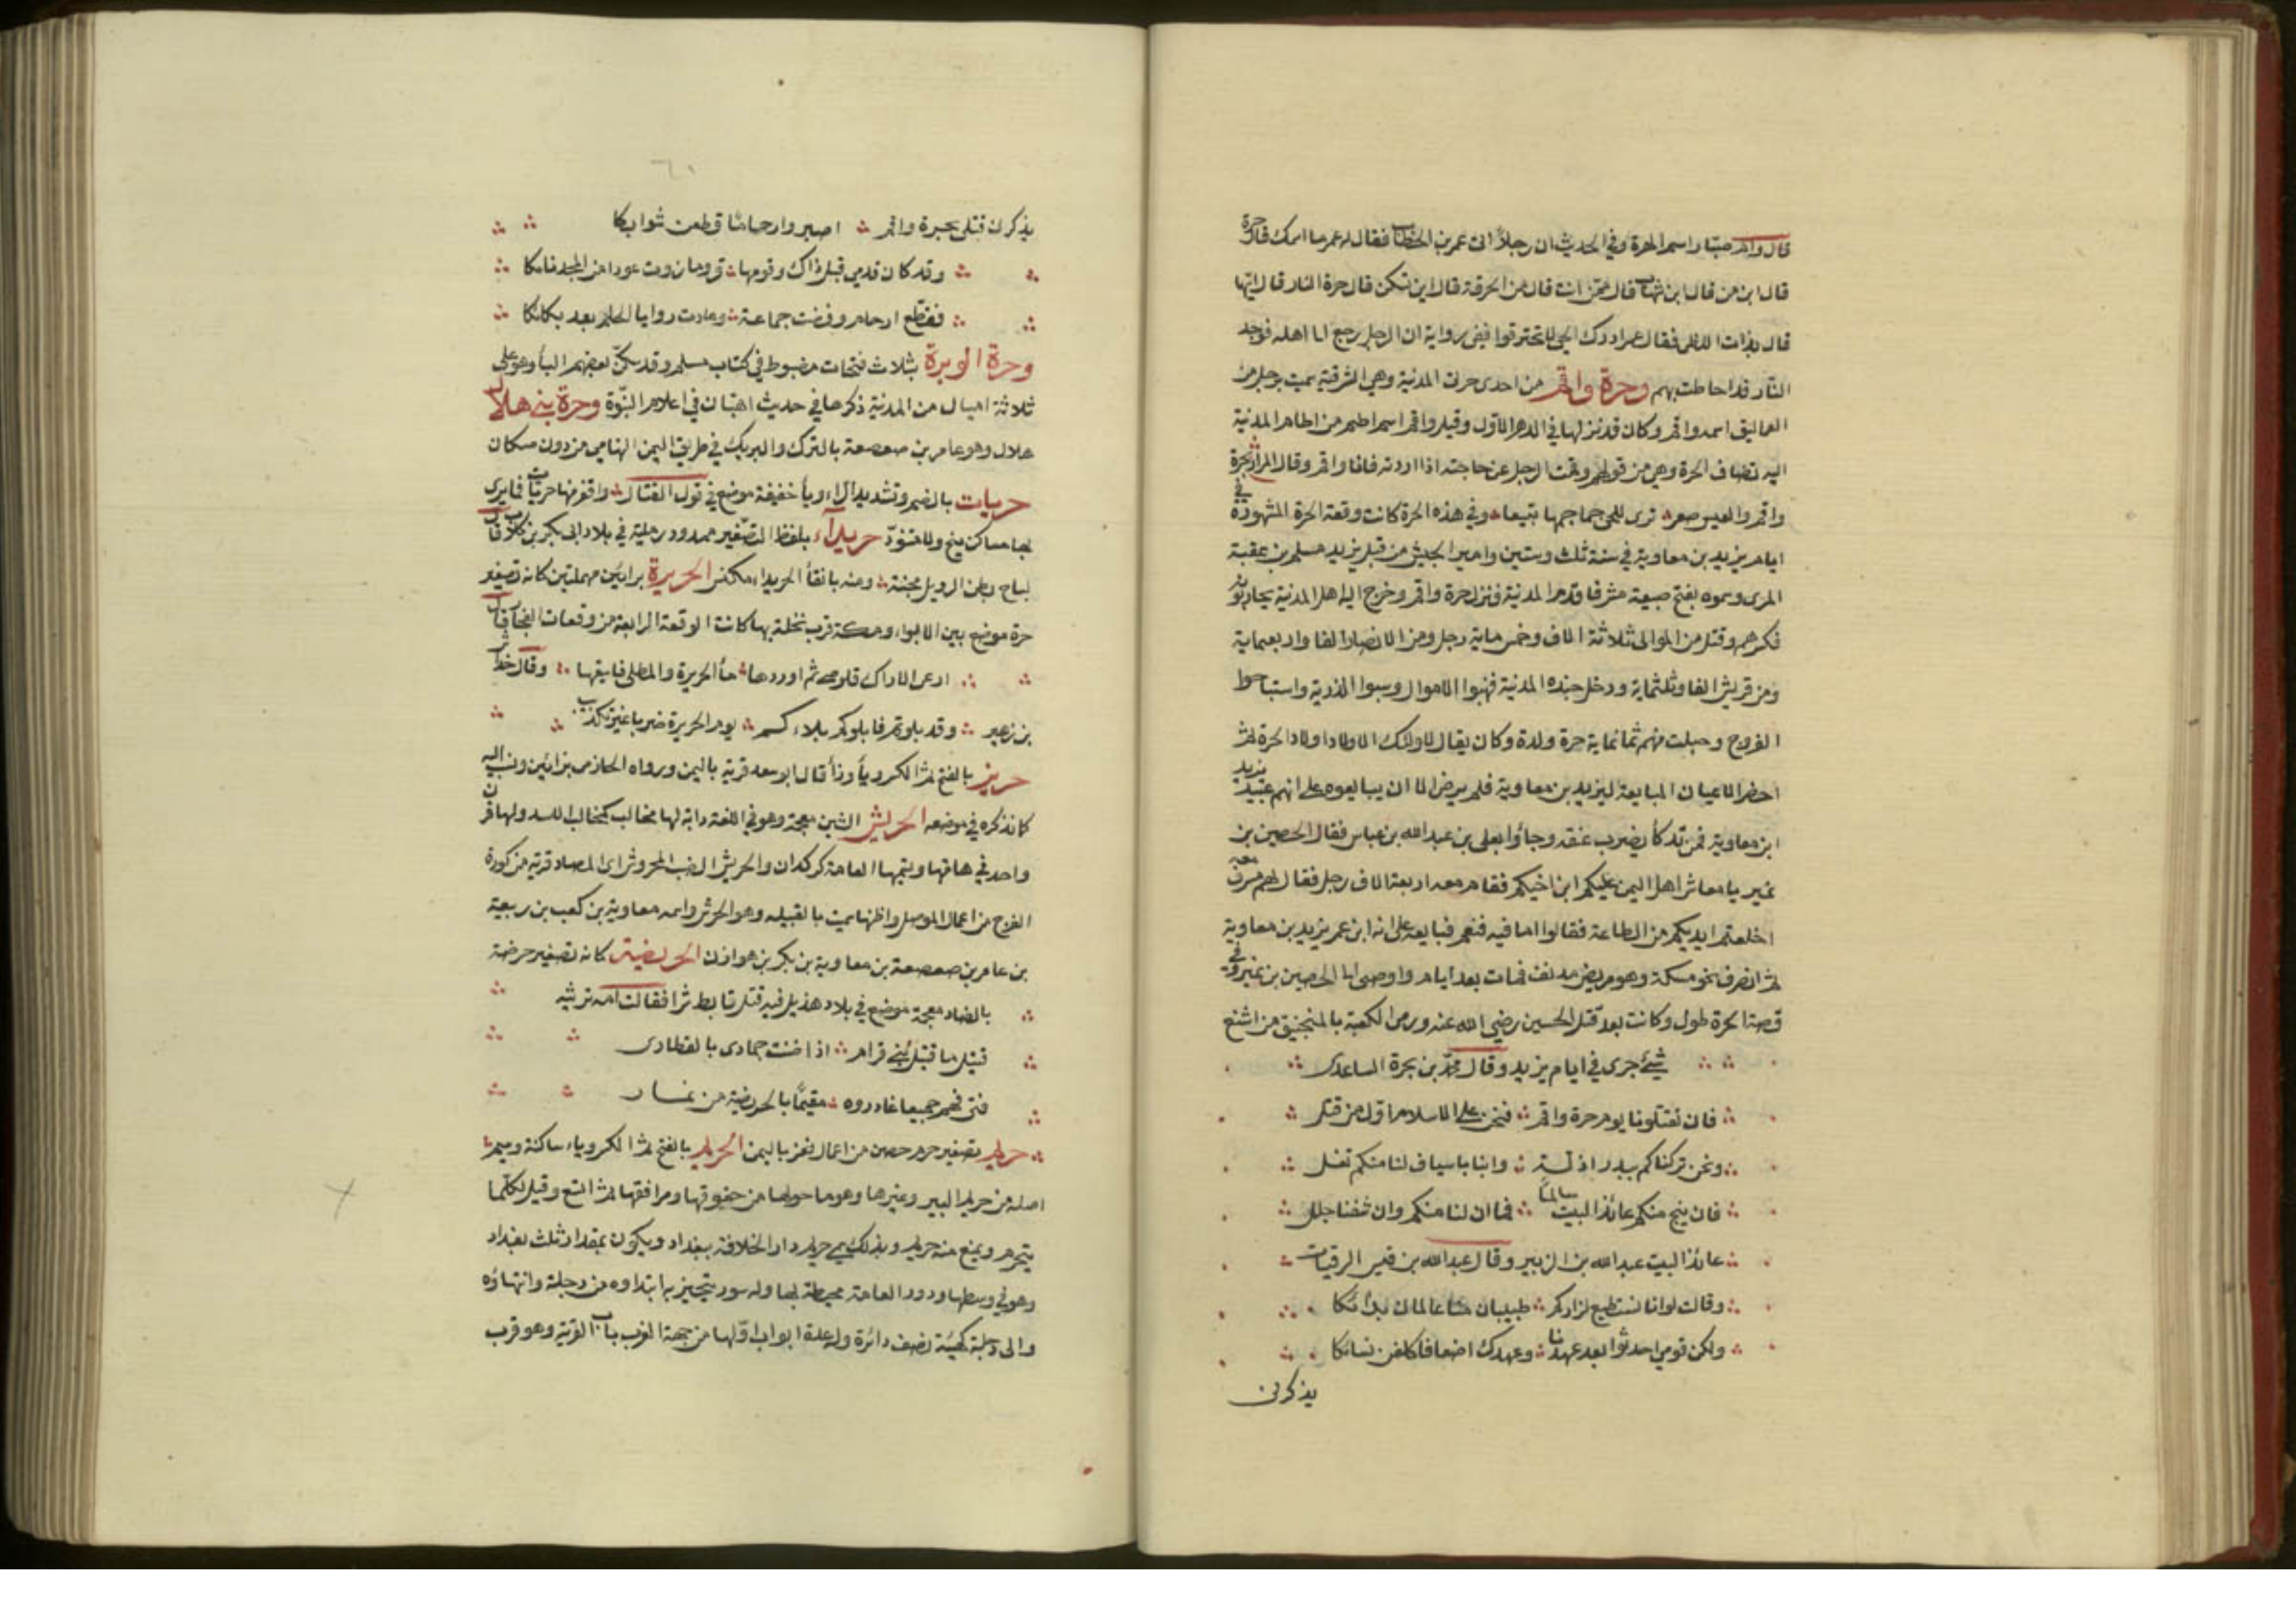 قال والم صبّار اسم الحرة وفي الحديث ان رجلاً اتى عمر بن الخطاب فقال له عمر ما اسمك قال جمرة
قال ابن من قال ابن شهاب قال ممّن انت قال من الحرقة قال اين تسكن قال حرة النار قال ايّها
قال بذات اللظى فقال عمر ادرك الحي لا تحترقوا ففي رواية ان الرجل رجع الى اهله فوجد
النّار قد احاطت بهم وحرة واقم من احدى حرات المدينة وهي الشرقية سميت برجل من
العماليق اسمه واقم وكان قد نزلها في الدهر الاول وقيل واقم اسم اطم من اطام المدينة
اليه تضاف الحرة وهي من قولهم وقمت الرجل عن حاجته اذا رددته فانا واقم وقال المرار بحرة
واقم والعيس صعر ترى للحى جماجمها تبيعا وفي هذه الحرة كانت وقعة الحرة المشهورة في
ايام يزيد بن معاوية في سنة ثلث وستين وامير الجيش من قبل يزيد مسلم بن عقبة
المري وسموه لقبح صنيعه مسرفا قدم المدينة فنزل حرة واقم وخرج اليه اهل المدينة يحاربونه
فكسرهم وقتل من الموالى ثلاثة الاف وخمس ماية رجل ومن الانصار الفا واربعماية
ومن قريش الفا وثلثماية ودخل جنده المدينة فنهبوا الاموال وسبوا الذرية واستباحوا
الفروج وحبلت منهم ثمانماية حرة ولدة وكان يقال لاولئك الاولاد اولاد الحرة ثم
احضر الاعيان لمبايعة ليزيد بن معاوية فلم يرض الا ان يبايعوه على انهم عبيد يزيد
ابن معاوية فمن تلكأ يضرب عنقه وجاؤا بعلى بن عبد الله بن عباس فقال الحصين بن
نمير يا معاشر اهل اليمن عليكم ابن اخيكم فقام معه اربعة الاف رجل فقال لهم مسرف
اخلعتم ايديكم من الطاعة فقالوا اما فيه فنعم فبايعه على انه ابن عم يزيد بن معاوية
ثم انصرف نحو مكة وهو مريض مدنف فمات بعد ايام واوصى الى الحصين بن نمير وفي
قصة الحرة طول وكانت بعد قتل الحسين رضي الله عنه ورمى الكعبة بالمنجنيق من اشنع
شيئ جرى في ايام يزيد وقال محمد بن بحرة الساعدى
فان تقتلونا يوم حرة واقم فنحن على الاسلام اول من قتل
ونحن تركناكم ببدر اذلة وابنا باسياف لنا منكم نفل
فان ينج منكم عائذ البيت سالماً فما ان لنا منكم وان شفنا جلل
عائذ البيت عبد الله بن الزبير وقال عبد الله بن قيس الرقيات
وقالت لو انا نستطيع لزاركم طبيبان منا عالمان بدائكا
ولكن قومي احدثوا بعد عهدنا وعهدك اضعانا كلفن نسائكا
يذكرن
يذكرن قتلى بحرة واقم اصبر وارحامًا قطعن شوابكا
وقد كان قومي قبل ذاك وقومها قروما زوت عودا من المجد تامكا
فقطع ارحام وفضت جماعة وعادت روايا الحلم بعد بكائكا
وحرة الوبرة بثلاث فتحات مضبوط في كتاب مسلم وقد سكنّ بعضهم البأ وهو على
ثلاثة اميال من المدينة ذكرها في حديث اهبان في اعلام النبوّة وحرة بني هلال
هلال وهو عامر بن صعصعة بالترك والبريك في طريق اليمن التهامي من دون ضنكان
حريات بالضم وتشديد الراء ويأ خفيفة موضع في قول القتال واقفر منها حريات فما يرى
بها ساكن نبح ولا متنوّر حريدآء بلفظ التصغير ممدود رملية في بلاد ابى بكر بن كلاب قال
لياح وطن الرويل مجنة ومنه بانقأ الحريداء مكنس الحريرة برائين مهملتين كانه تصغير
حرة موضع بين الابواء ومكة قرب نخلة بها كانت الوقعة الرابعة من وقعات الفجار قال
ادعى الاراك قلوصي ثم اوردها مأ الحريرة والمطلى فاسقيها وقال خداش
بن زهير وقد بلوتم فابلوكم بلاءكم يوم الحريرة ضربا غير تكذيب
حريز بالفتح ثم الكسر ويأ وزأ قال ابو سعد قرية باليمن ورواه الحازمي بزائين ونسب اليه
كما نذكره في موضعه الحريش الشين معجمة وهو في اللغة دابة لها مخالب كمخالب الاسد ولها قرن
واحد في هامتها ويسميها العامة كركدان والحريش الضب المحروش اى المصاد قرية من كورة
الفرج من اعمال الموصل واظنها سميت بالقبيله وهو الحرش واسمه معاوية بن كعب بن ربيعة
بن عامر بن صعصعة بن معاوية بن بكر بن هوازن الحريضة كانه تصغير حرضة
بالضاد معجمة موضع في بلاد هذيل فيه قتل تابط شرا فقالت امه ترثيه
قتيل ما قتيل بني قرام اذا ضنت جمادى بالقطار
فتى فهم جميعا غادروه مقيمًا بالحريضة من نمار
حريم تصغير حرم حصن من اعمال تعز باليمن الحريم بالفتح ثم الكسر وياء ساكنة وميم
اصله من حريم البير وغيرها وهو ما حولها من حقوقها ومرافقها ثم اتسع وقيل لكلما
يتحرم ويمنع منه حريم وبذلك سمي حريم دار الخلافة ببغداد ويكون بمقدار ثلث بغداد
وهو في وسطها ودور العامة محيطة بها وله سور يتحيز به ابتداوه من دجلة وانتهاؤه
والى دجلة كهيئة نصف دائرة وله عدة ابواب اولها من جهة الغرب باب القرية وهو قرب